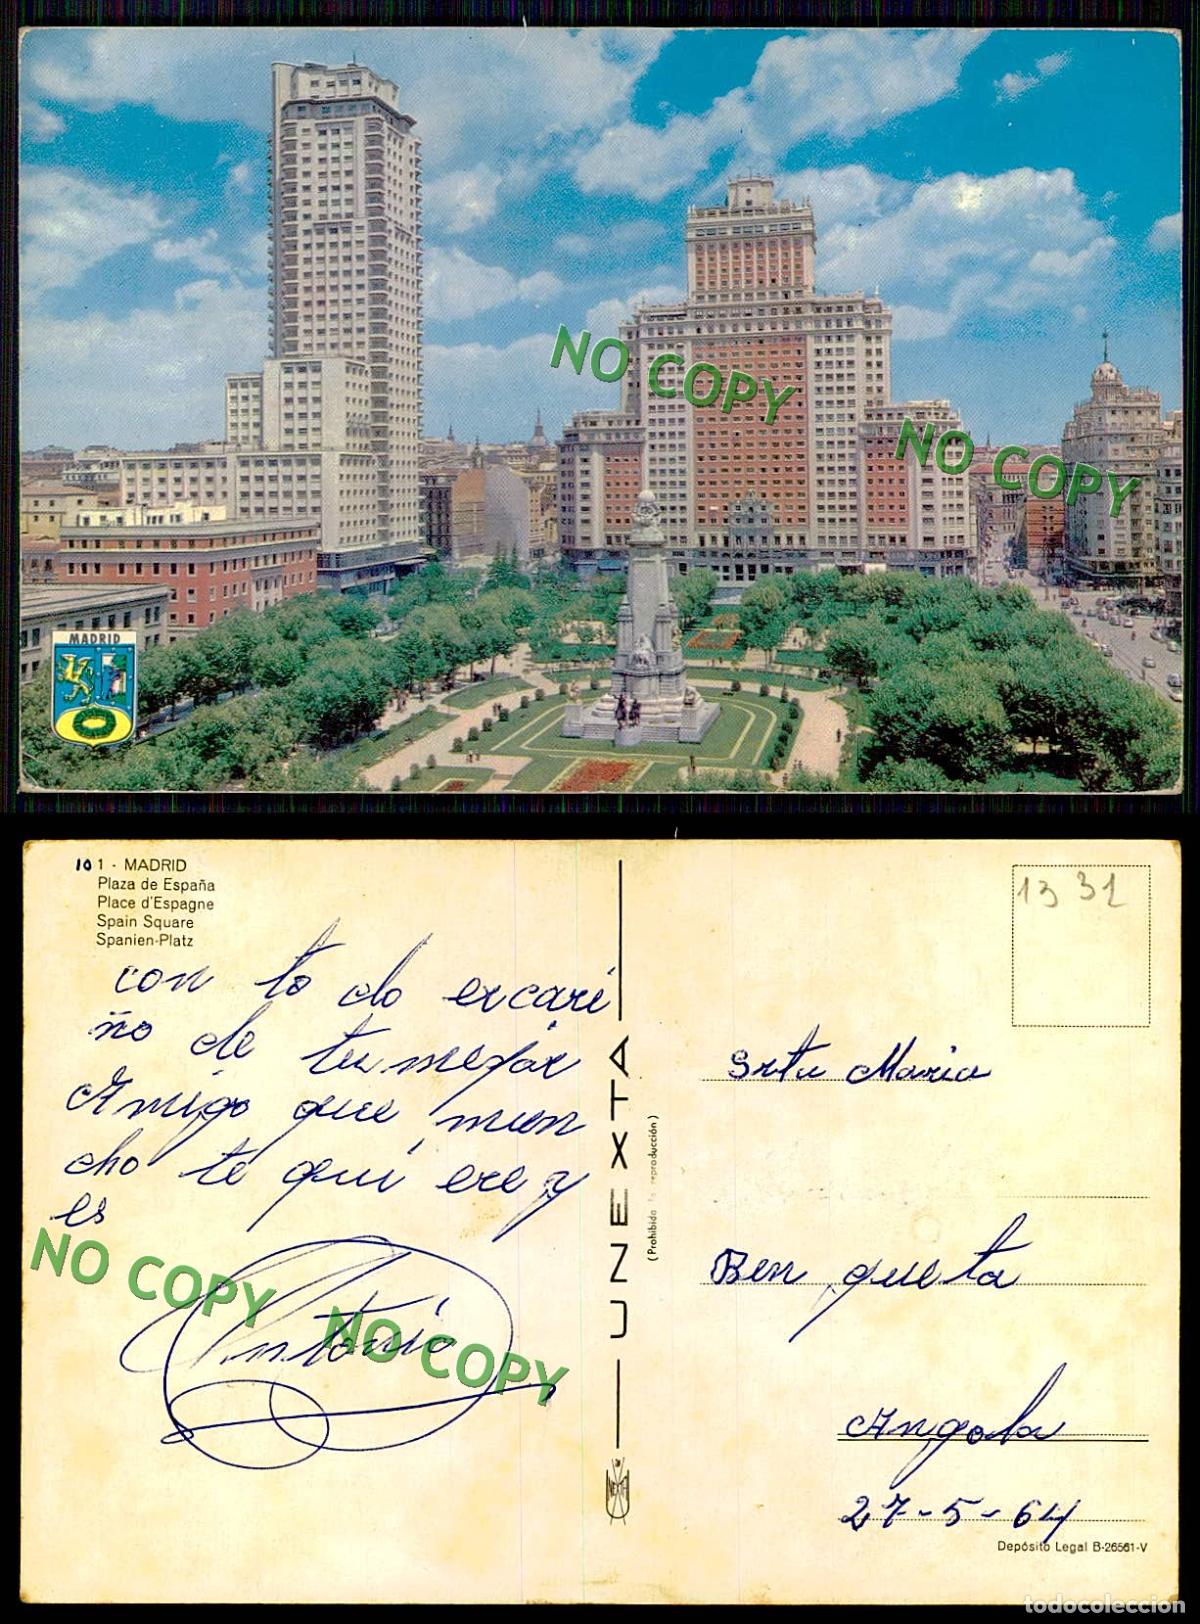 MADRID
NO COPY
NO COPY
101 - MADRID
Plaza de España
Place d'Espagne
Spain Square
Spanien-Platz
con to do ercari
ño de tu mejor
Amigo que mun
cho te qui ere y
es
Antonio
NO COPY
NO COPY
UNEXTA
(Prohibida la reproducción)
13 31
Srta Maria
Ben queta
Angola
27-5-64
Depósito Legal B-26561-V
todocoleccion